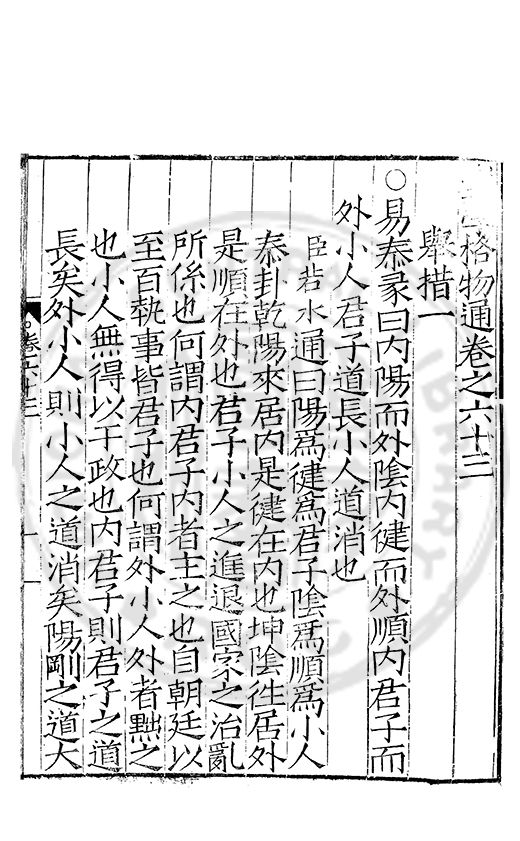 格物通卷之六十三
舉措一
○易泰彖曰內陽而外陰內健而外順內君子而
外小人君子道長小人道消也
臣若水通曰陽爲健爲君子陰爲順爲小人
泰卦乾陽來居內是健在內也坤陰往居外
是順在外也君子小人之進退國家之治亂
所係也何謂內君子內者主之也自朝廷以
至百執事皆君子也何謂外小人外者黜之
也小人無得以干政也內君子則君子之道
長矣外小人則小人之道消矣陽剛之道大
卷六十三
一